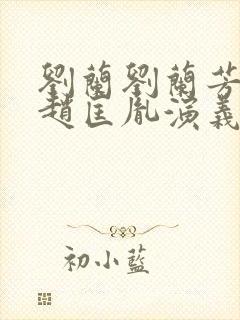 劉蘭劉蘭芳
趙匡胤演義
初小藍